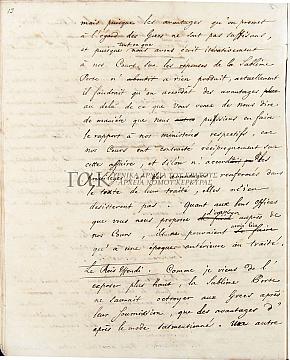 12
mais puisque les avantages qu'on promet
à l'égard des Grecs ne sont pas suffisant,
et puisque nous avons écrit itérativement
à nos Cours sur les réponses de la Sublime
Porte n' a rien produit, actuellement
il faudrait qu'on accordât des avantages
au delà de ce que vous venez de nous dire
de manière que nous puissions en faire
le rapport à nos ministères respectifs, car
nos Cours ont contracté réciproquement sur
cette affaire, et si l'on n'
ΓΕΝΙΚΑ ΑΡΧΕΙΑ ΤΟΥ ΚΡΑΤΟΥΣ
ΑΡΧΕΙΑ ΝΟΜΟΥ ΚΕΡΚΥΡΑΣ
ΓΑΚ
renfermés dans
le texte de leur traité, elles n'en
désisteront pas. Quant aux bons offices
que vous nous proposez auprès de
nos Cours, ils ne pourraient avoir lieu
qu'à une époque antérieure au traité.
Le Reis Effendi. Comme je viens de l'
exposer plus haut, la Sublime Porte
ne saurait octroyer aux Grecs après
leur soumission, que des avantages d'
après le mode susmentionné. Une autre